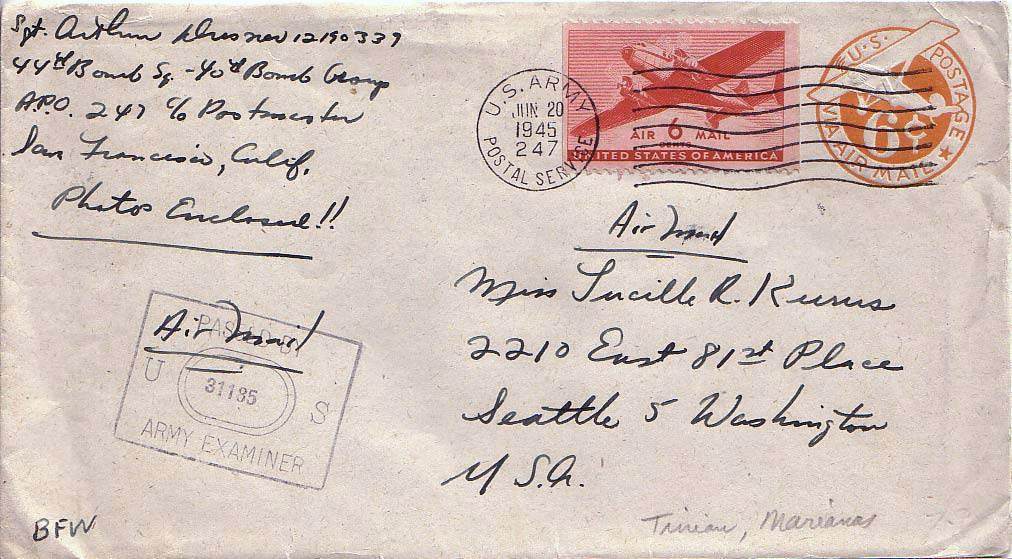 Sgt. Arthur Dresner 12190339
44th Bomb Sq. - 40th Bomb Group
A.P.O. 247 c/o Postmaster
San Francisco, Calif.
Photos Enclosed!!
U.S. ARMY
JUN 20
1945
247
POSTAL SERVICE
AIR 6 MAIL
CENTS
UNITED STATES OF AMERICA
U.S. POSTAGE
6¢
VIA AIR MAIL
Air Mail
Miss Lucille R. Kurus
2210 East 81st Place
Seattle 5 Washington
U.S.A.
Air Mail
PASSED BY
U 31185 S
ARMY EXAMINER
BFW
Tinian, Marianas